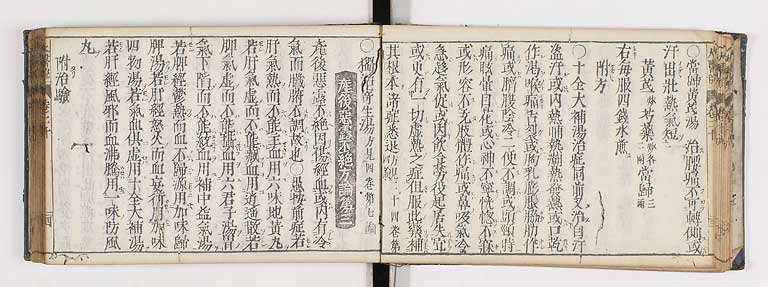 〇當歸黃芪湯　治腰痛不可轉側或
汗出壯熱氣短
黃芪　芍藥　當歸
右每服四錢水煎
附方
〇十全大補湯治症同前又治自汗
盜汗或內熱晡熱潮熱發熱或口乾
作渴喉痛舌裂或胸乳膨脹脇肋作
痛或臍腹陰冷二便不調或頭頸時
痛眩暈目花或心神不寧恍惚不寐
或形容不充肢體作痛或鼻吸氣冷
急趨氣促或內飲食勞役起居失宜
或更有一切虛熱之症但服此藥補
其根本諸症悉退方見二十四卷第
〇獨活寄生湯方見四卷第七論
產後惡露不絕方論第三
產後惡露不絕因傷經血或內有冷
氣而臟腑不調故也〇愚按前症若
肝氣熱而不能主血用六味地黃丸
若肝氣虛而不能藏血用逍遙散若
脾氣虛而不能攝血用六君子湯胃
氣下陷而不能統血用補中益氣湯
若脾經鬱熱而血不歸源用加味歸
脾湯若肝經怒火而血妄行用加味
四物湯若氣血俱虛用十全大補湯
若肝經風邪而血沸騰用一味防風
丸
附治驗